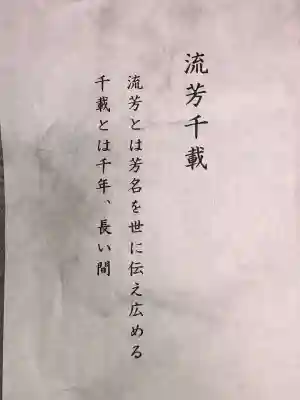 流芳千載
流芳とは芳名を世に伝え広める
千載とは千年、長い間